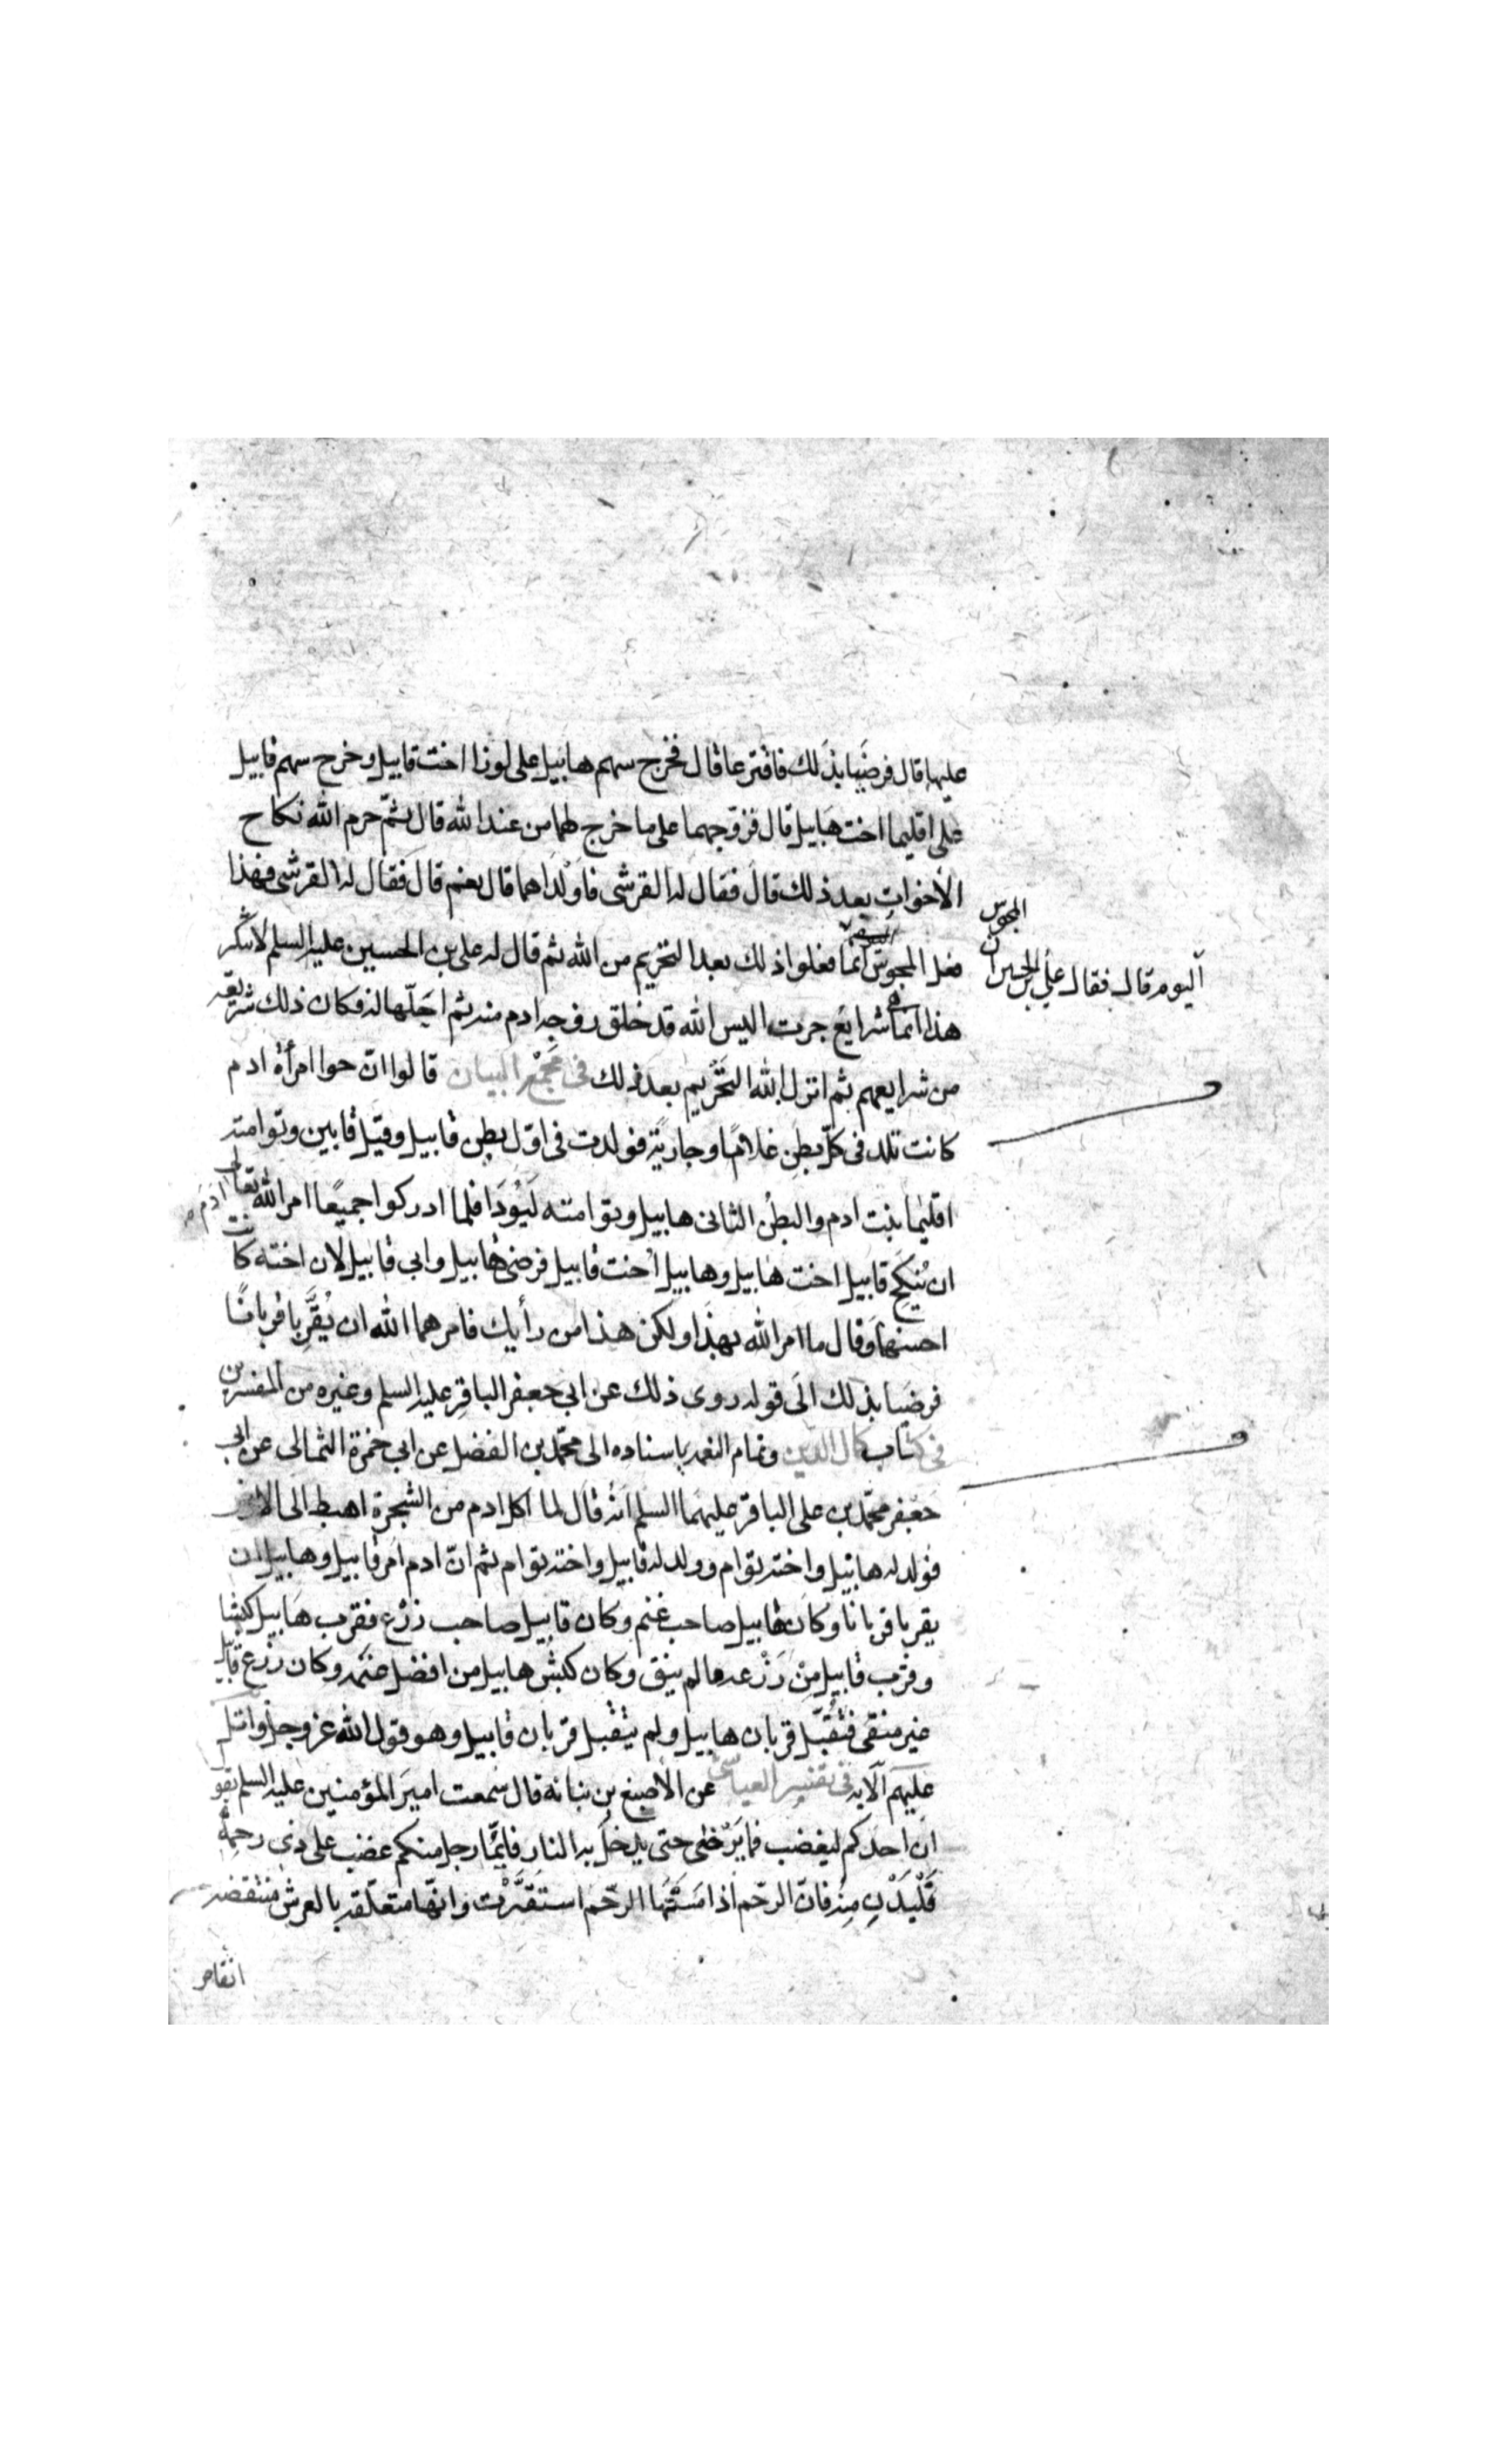 عليها قال فرضيا بذلك فاقترعا قال فخرج سهم هابيل على لوزا اخت قابيل وخرج سهم قابيل
على اقليما اخت هابيل قال فزوجهما على ما خرج لهما من عند الله قال ثم حرم الله نكاح
الاخوات بعد ذلك قال فقال له القرشى فاولداهما قال نعم قال فقال له القرشى فهذا
فعل المجوس
المجوس
اليوم قال فقال علي بن الحسين ان
انما فعلوا ذلك بعد التحريم من الله ثم قال له على بن الحسين عليه السلم لا تنكر
هذا انما هي شرايع جرت اليس الله قد خلق زوجه ادم منه ثم احلها له فكان ذلك شريعة
من شرايعهم ثم انزل الله التحريم بعد ذلك فى مجمع البيان قالوا ان حوا امرأة ادم
كانت تلد فى كل بطن غلامًا وجارية فولدت فى اول بطن قابيل وقيل قابين وتوامته
اقليما بنت ادم والبطن الثانى هابيل وتوامته ليودا فلما ادركوا جميعًا امر الله تعالى ادم
ان ينكح قابيل اخت هابيل وهابيل اخت قابيل فرضى هابيل وابى قابيل لان اخته كانت
احسنها وقال ما امر الله بهذا ولكن هذا من رأيك فامرهما الله ان يقربا قربانًا
فرضيا بذلك الى قوله روى ذلك عن ابى جعفر الباقر عليه السلم وغيره من المفسرين
فى كتاب كمال الدين وتمام النعمه باسناده الى محمد بن الفضل عن ابى حمزة الثمالى عن ابى
جعفر محمد بن على الباقر عليهما السلم انه قال لما اكل ادم من الشجرة اهبط الى الارض
فولد له هابيل واخته توام وولد له قابيل واخته توام ثم ان ادم امر قابيل وهابيل ان
يقربا قربانا وكان هابيل صاحب غنم وكان قابيل صاحب زرع فقرب هابيل كبشا
وقرب قابيل من زرعه ما لم ينق وكان كبش هابيل من افضل غنمه وكان زرع قابيل
غير منقى فتقبل قربان هابيل ولم يتقبل قربان قابيل وهو قول الله عز وجل واتل
عليهم الايه فى تفسير العياشى عن الاصبغ بن نباته قال سمعت امير المؤمنين عليه السلم يقول
ان احدكم ليغضب فما يرضى حتى يدخل به النار فايما رجل منكم غضب على ذى رحمه
فليدن منه فان الرحم اذا مستها الرحم استقرت وانها متعلقه بالعرش منتقضه
انتقاض